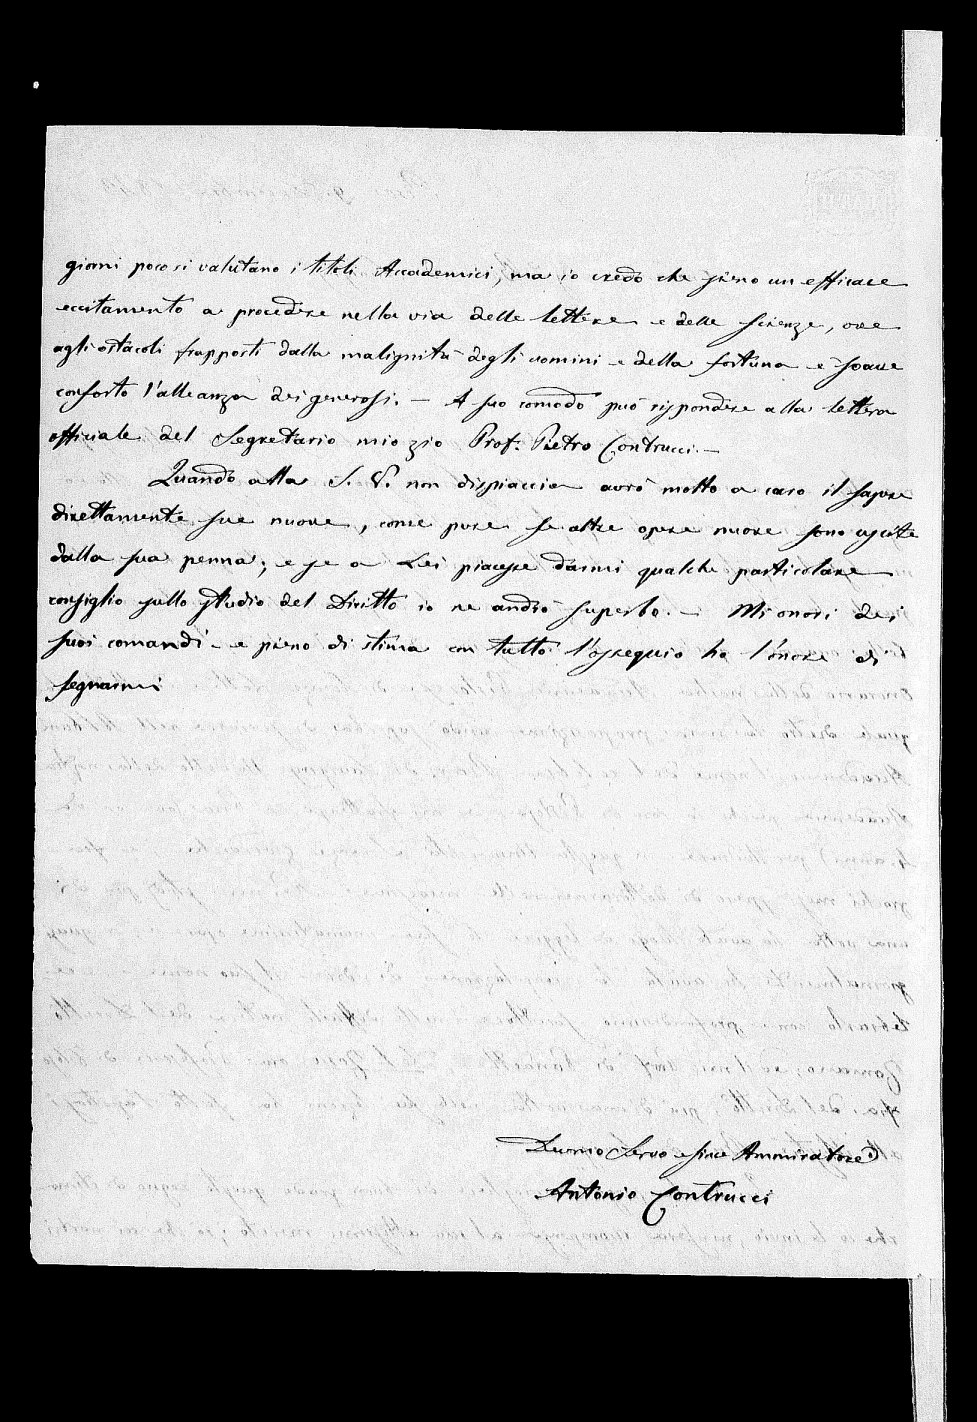 giorni poco si valutano i titoli Accademici, ma io credo che sieno un efficace
eccitamento a procedere nella via delle lettere e delle scienze, ove
agli ostacoli frapposti dalla malignità degli uomini e della fortuna è soave
conforto l'alleanza dei generosi. — A suo comodo può rispondere alla lettera
officiale del Segretario mio zio Prof. Pietro Contrucci. —
Quando alla S. V. non dispiaccia avrò molto a caro il sapere
direttamente sue nuove, come pure se altre opere nuove sono uscite
dalla sua penna; e se a Lei piacesse darmi qualche particolare
consiglio sullo studio del Diritto io ne andrò superbo. — Mi onori dei
suoi comandi — e pieno di stima con tutto l'ossequio ho l'onore di
segnarmi
Devmo Servo e Ammiratore
Antonio Contrucci